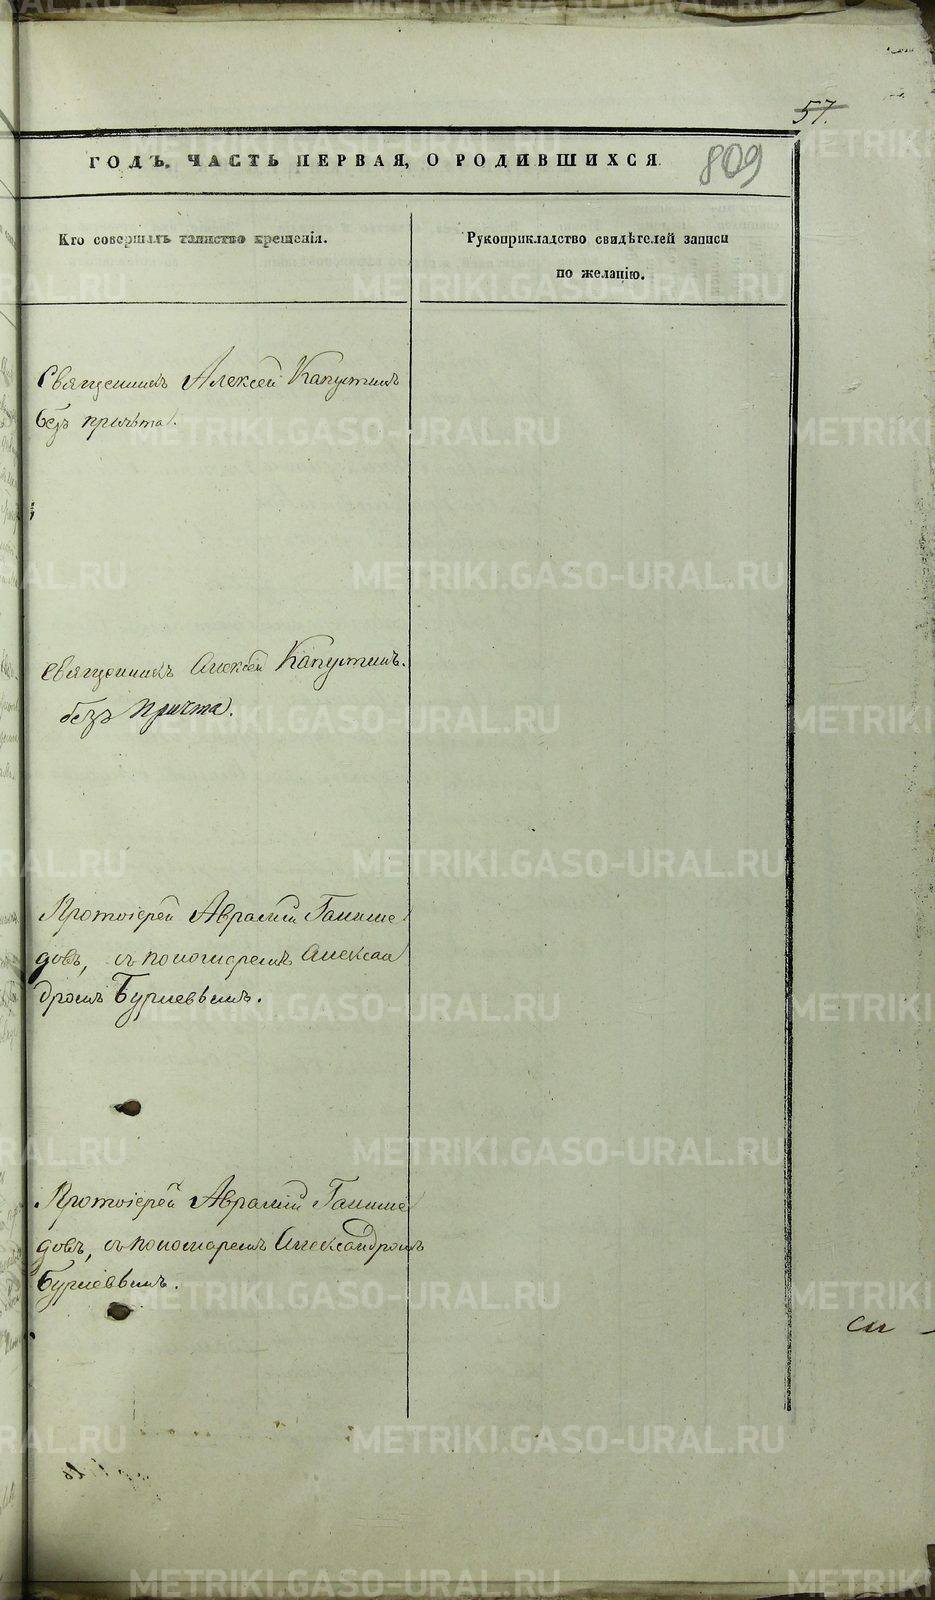 57.
ГОДЪ. ЧАСТЬ ПЕРВАЯ, О РОДИВШИХСЯ.
809
Кто совершалъ таинство крещенія.
Рукоприкладство свидѣтелей записи
по желанію.
Священникъ Алексей Капустинъ
безъ причьта.
Священникъ Алексей Капустинъ.
безъ причта.
Протоіерей Аврамій Ганиме
довъ, съ пономаремъ Алексан
дромъ Бурневымъ.
Протоіерей Аврамій Ганиме
довъ, съ пономаремъ Александромъ
Бурневымъ.
METRIKI.GASO-URAL.RU